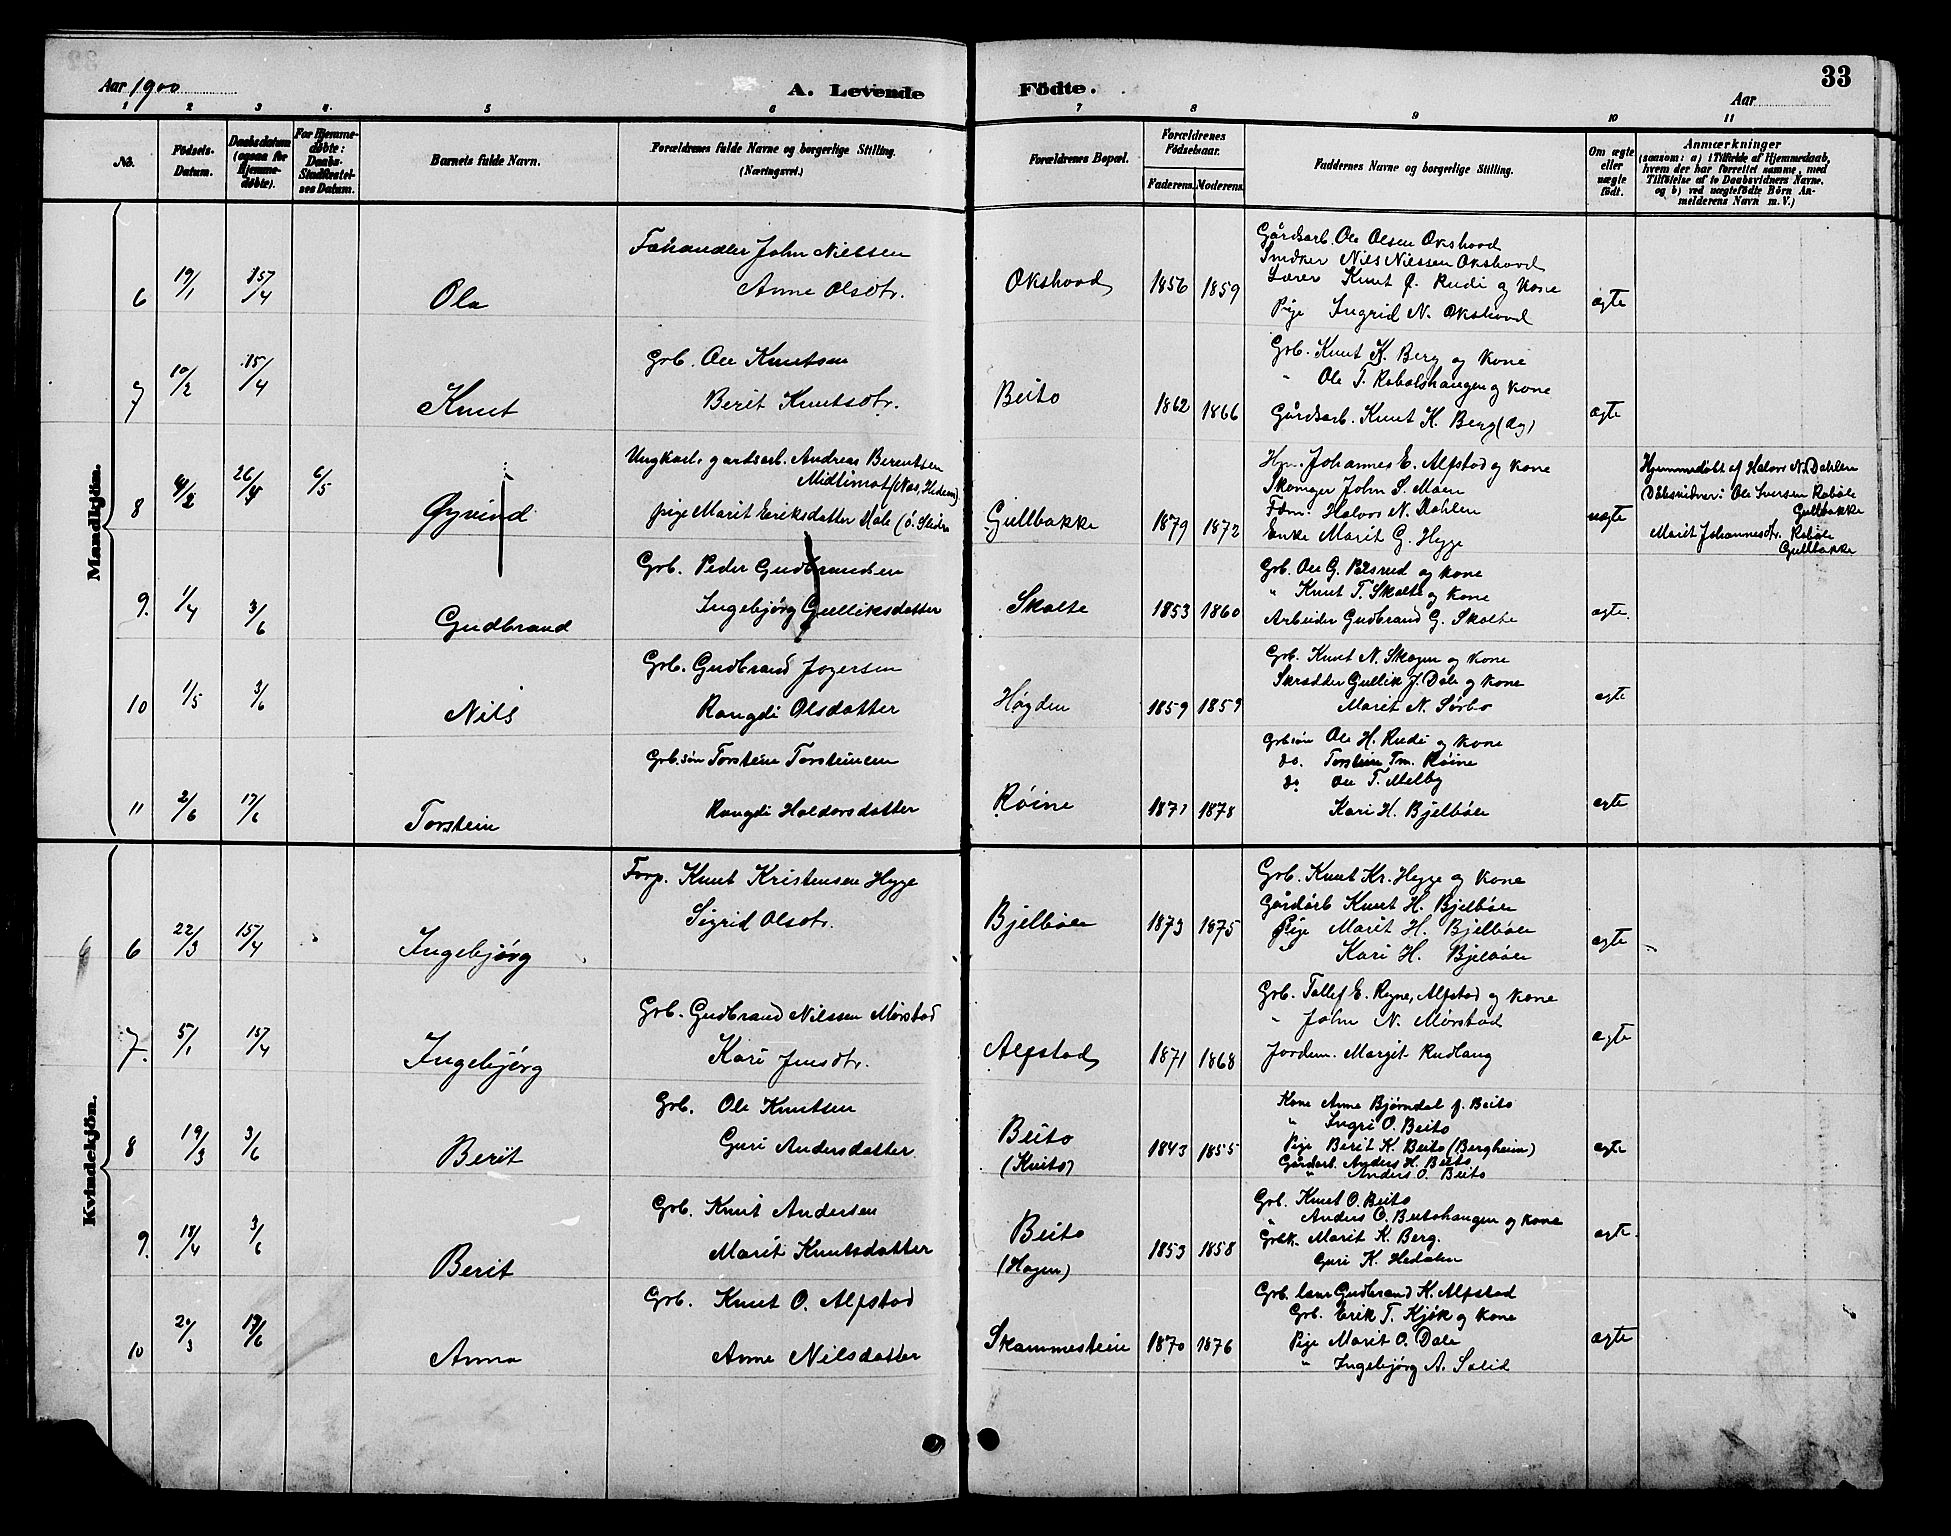 33
Aar 1900
A. Levende Födte.
Aar
1 2 3 4 5 6 7 8 9 10 11
No.
Födsels-Datum.
Daabsdatum (ogsaa for Hjemmedöbte).
For Hjemmedöbte: Daabs-Stadfæstelses Datum.
Barnets fulde Navn.
Forældrenes fulde Navne og borgerlige Stilling. (Næringsvei.)
Forældrenes Bopæl.
Forældrenes Födselsaar.
Faderens. Moderens.
Faddernes Navne og borgerlige Stilling.
Om ægte eller uægte födt.
Anmærkninger
(saasom: a) i Tilfælde af Hjemmedaab,
hvem der har forrettet samme, med
Tilföielse af to Daabsvidners Navne.
og b) ved uægtefödte Börn An-
melderens Navn m. V.)
Mandkjön.
6 19/1 15/4 Ola
Fæhandler John Nielssen
Anne Olsdtr.
Okshovd 1856 1859
Gårdsarb. Ole Olsen Okshovd
Snedker Nils Nilssen Okshovd
Lærer Knut O. Rudi og Kone
Pige Ingrid N. Okshovd
ægte
7 10/2 15/4 Knut
Grb. Ole Knutsen
Berit Knutsdtr.
Beito 1862 1866
Grb. Knut K. Berg og Kone
" Ole T. Robølshaugen og Kone
Gårdsarb. Knut K. Berg (dy)
ægte
8 4/2 26/4 6/5 Øyvind
Ungkarl. gardsarb. Andreas Berentsen
Midtimot (Nes, Hedem)
pige Marit Eriksdatter Dale (ö. Slidre
Gullbakke 1879 1872
Johannes E. Alfstad og Kone
Skomger John S. Moen
Fdm. Halvor N. Dahlen
Enke Marit G. Hegge
uægte
Hjemmedøbt af Halvor N. Dahlen
Dåbsvidner: Ole Iversen Robøle
Gullbakke
Marit Johannesdtr. Robøle
Gullbakke
9. 1/4 3/6 Gudbrand
Grb. Peder Gudbrandsen
Ingebjørg Gulliksdatter
Skolte 1853 1860
Grb. Ole G. Pålsrud og Kone
" Knut T. Skolte og Kone
Arbeider Gudbrand G. Skolte
ægte.
10 1/5 3/6 Nils
Grb. Gudbrand Jogersen
Rangdi Olsdatter
Høgden 1859 1859
Grb. Knut N. Skogen og Kone
Skrædder Gullik J. Dale og Kone
Marit N. Sørbo
ægte
11 2/6 17/6 Torstein
Grb.søn Torstein Torsteinsen
Rangdi Haldorsdatter
Røine 1871 1878
Grb.søn Ole H. Rudi og Kone
do. Torstein Tm. Røine
do Ole T. Melby
Kari H. Bjelbøle
ægte
Kvindekjön.
6 22/3 15/4 Ingebjörg
Forp. Knut Kristensen Hegge
Sigrid Olsdtr.
Bjelbøle 1873 1875
Grb. Knut Kr. Hegge og Kone
Gårdarb Knut H. Bjelbøle
Pige Marit H. Bjelbøle
Kari H. Bjelbøle
ægte
7. 5/1 15/4 Ingebjörg
Grb. Gudbrand Nilssen Mørstad
Kari Jensdtr.
Alfstad 1871 1868
Grb. Tollef E. Rogne, Alfstad og Kone
" John N. Mørstad
Jordem. Margit Rudlang
ægte
8 19/3 3/6 Berit
Grb. Ole Knutsen
Guri Andersdatter
Beito (Knito) 1843 1855
Kone Anne Bjørndal f. Beito
" Ingri O. Beito
Pige Berit K. Beito (Bergheim)
Gårdarb. Anders H. Beito
" Anders O. Beito
ægte
9. 18/4 3/6 Berit
Grb. Knut Andersen
Marit Knutsdatter
Beito (Hagen) 1853 1858
Grb. Knut O. Beito
" Anders O. Beitohaugen og Kone
Grbk. Marit K. Berg.
Guri K. Hedalen
ægte.
10 20/3 17/6 Anna
Grb. Knut O. Alfstad
Anne Nilsdatter
Skammestein 1870 1876
Grb. Gudbrand K. Alfstad
Grb. Erik T. Kjøk og Kone
Pige Marit O. Dale
" Ingebjørg A. Solid
ægte